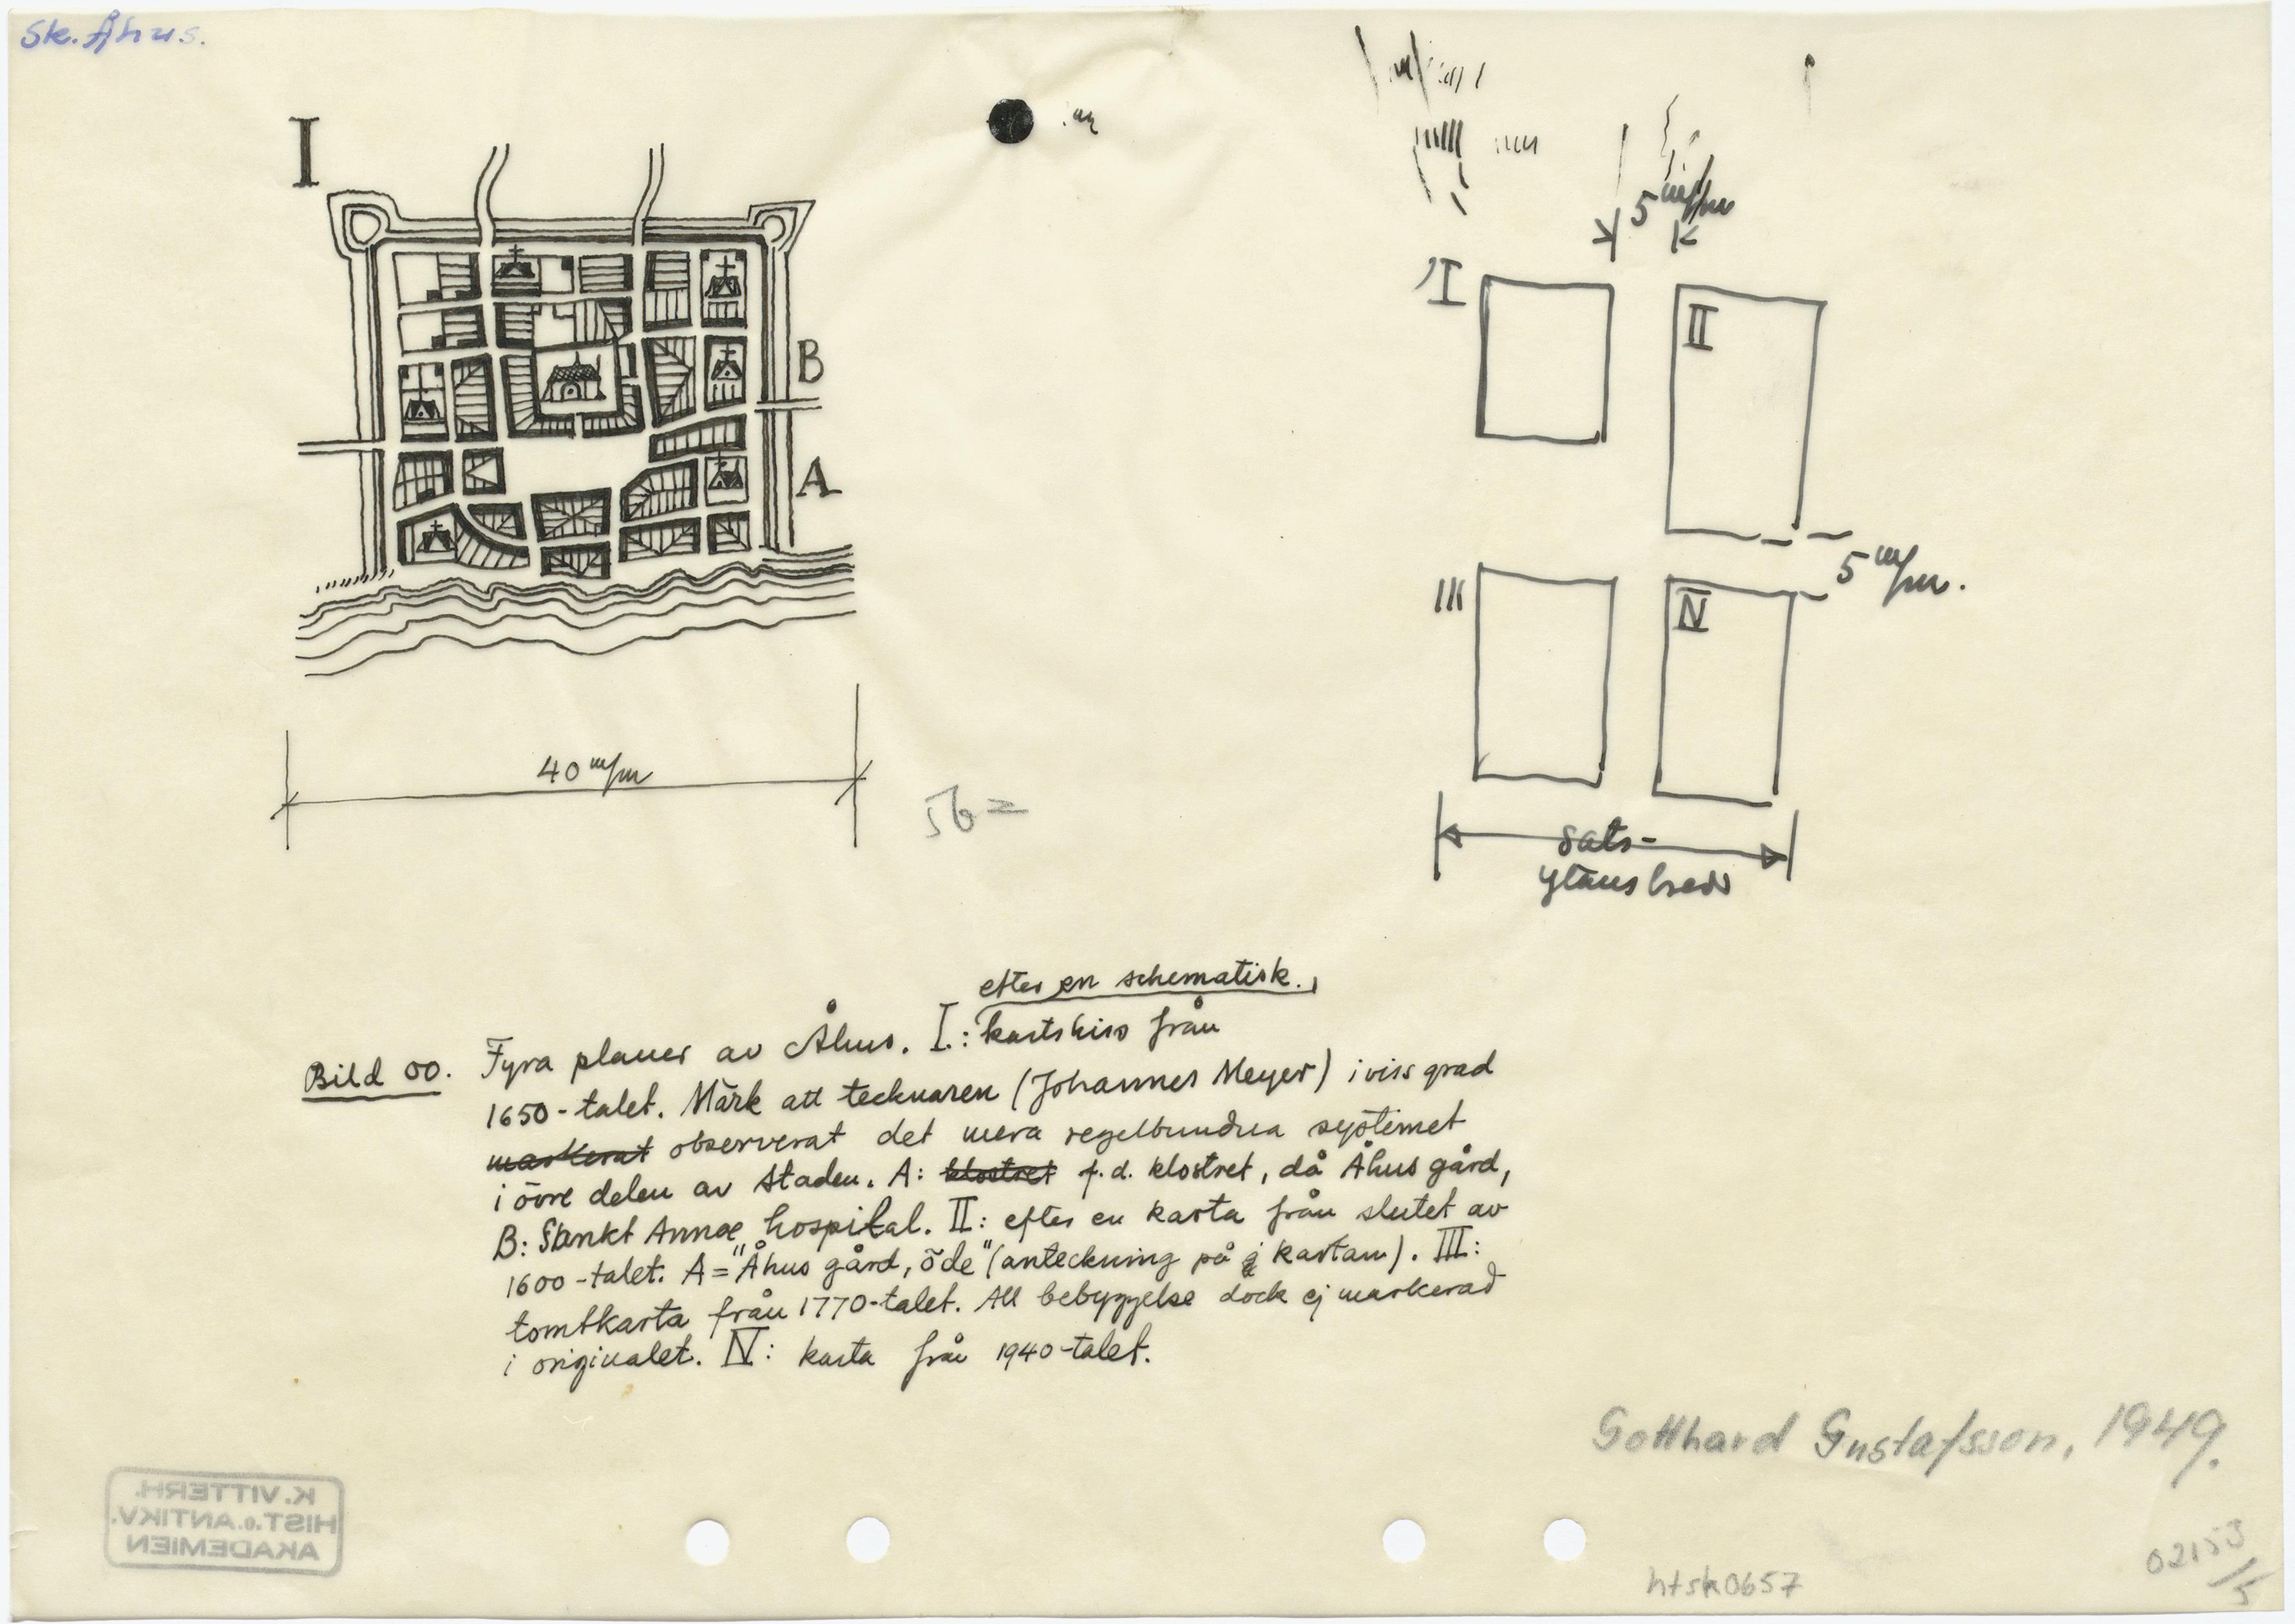 Sk. Åhus.
I
B
A
40 m/m
56 =
5 m/m
I
II
5 m/m.
III
IV
sats-
ytans bredd
efter en schematisk.
Bild 00. Fyra planer av Åhus. I.: kartskiss från
1650-talet. Märk att tecknaren (Johannes Meyer) i viss grad
markerat observerat det mera regelbundna systemet
i övre delen av staden. A: klostret f.d. klostret, då Åhus gård,
B: Sankt Annæ hospital. II: efter en karta från slutet av
1600-talet. A = "Åhus gård, öde" (anteckning på kartan). III:
tomtkarta från 1770-talet. All bebyggelse dock ej markerad
i originalet. IV: karta från 1940-talet.
Gotthard Gustafsson, 1949.
K. VITTERH.
HIST. o. ANTIKV.
AKADEMIEN
htsk0657
02153/5